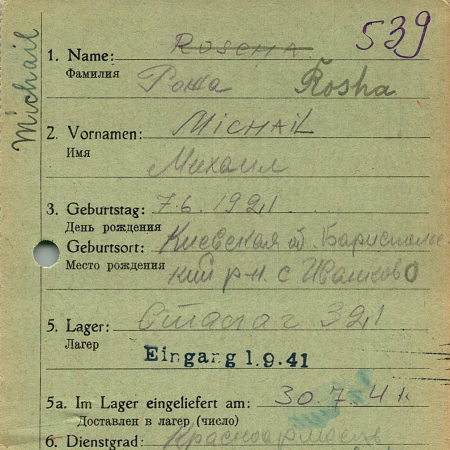 Michail
539
1. Name: Roscha
Фамилия Рожа Rosha
2. Vornamen: Michail
Имя
Михаил
3. Geburtstag: 7.6.1921
День рождения
Geburtsort: Киевская об. Бариспольс-
Место рождения кий р-н. с Ивашково
5. Lager: Сталаг 321
Лагер
Eingang 1.9.41
5a. Im Lager eingeliefert am: 30.7.41
Доставлен в лагер (число)
6. Dienstgrad: Красноармеец